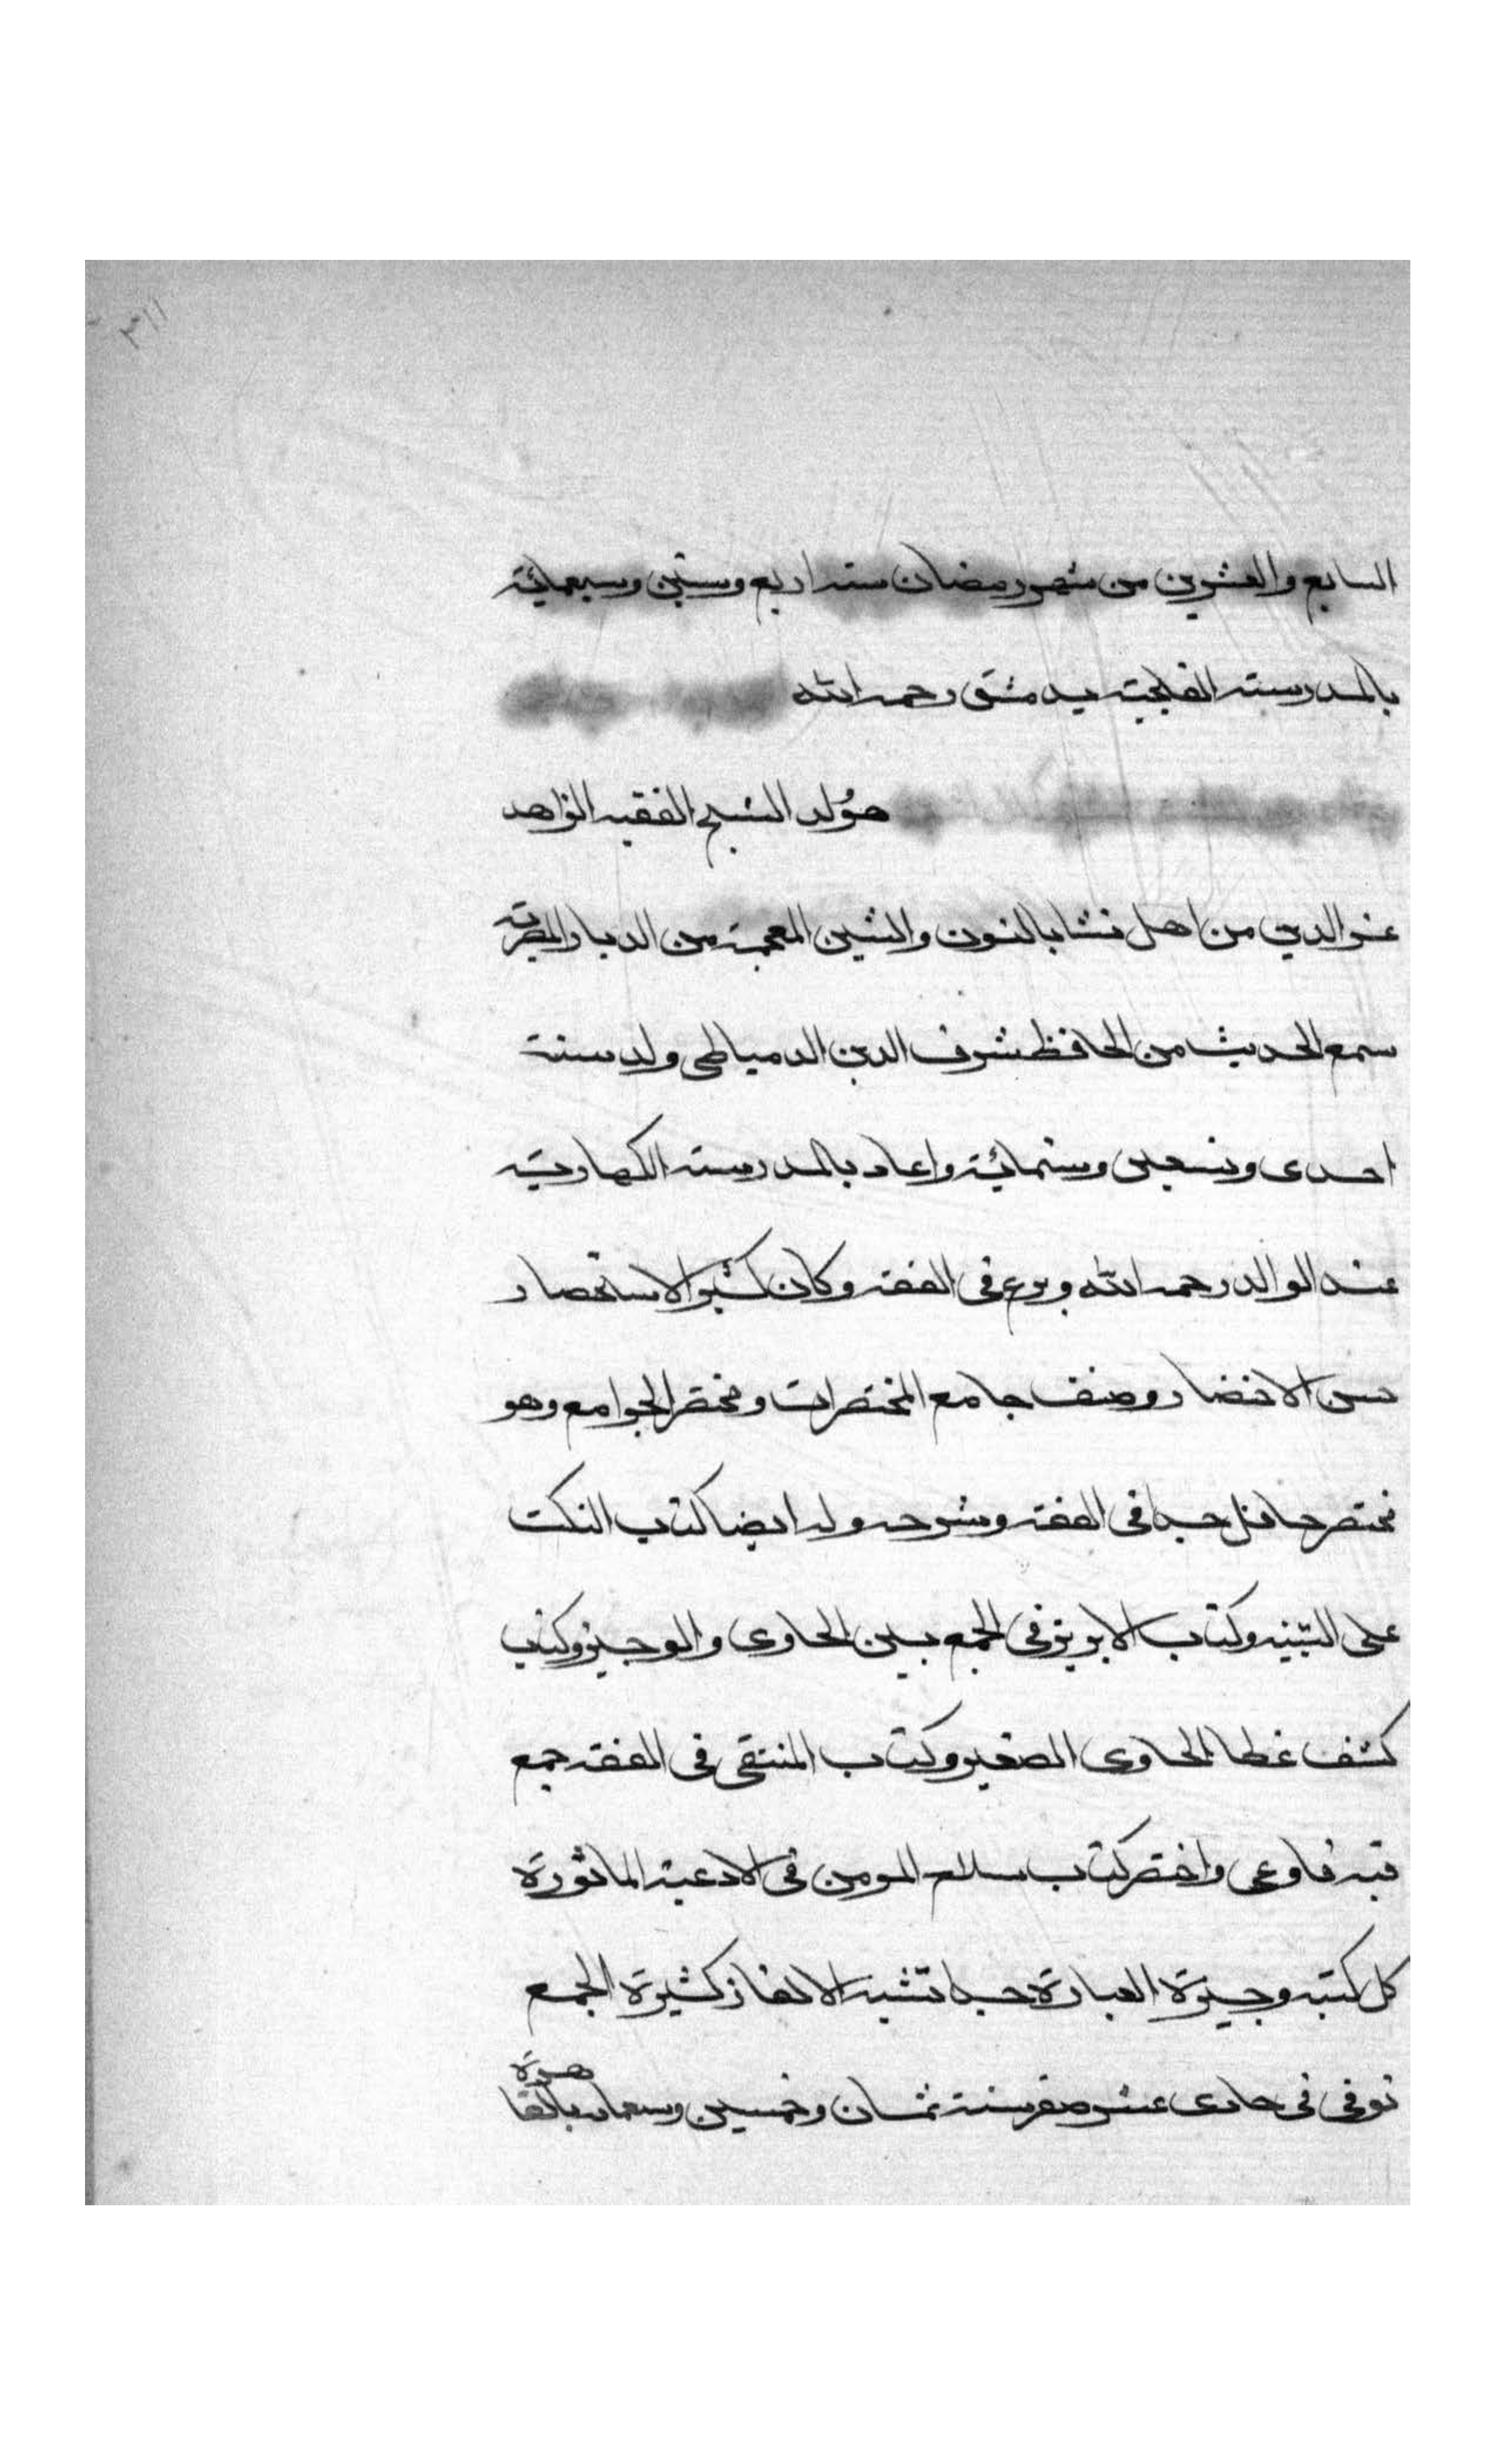 ٣١١
السابع والعشرين من شهر رمضان سنة اربع وستين وسبعمائة
بالمدرسة القليجية بدمشق رحمه الله
هو ولد الشيخ الفقيه الزاهد
عز الدين من اهل نشا بالنون والشين المعجمة من الديار المصرية
سمع الحديث من الحافظ شرف الدين الدمياطى ولد سنة
احدى وتسعين وستمائة واعاد بالمدرسة الكهارية
عند الوالد رحمه الله وبرع فى الفقه وكان كثير الاستحضار
حسن الاختصار وصنف جامع المختصرات ومختصر الجوامع وهو
مختصر حافل جدا فى الفقه وشرحه وله ايضا كتاب النكت
على التنبيه وكتاب الابريز فى الجمع بين الحاوى والوجيز وكتاب
كشف غطا الحاوى الصغير وكتاب المنتقى فى الفقه جمع
فيه فاوعى واختصر كتاب سلاح المومن فى الادعية الماثورة
كل كتبه وجيزة العبارة جدا تشبه الالغاز كثيرة الجمع
توفى فى حادى عشر صفر سنة ثمان وخمسين وسبعمائة بالقاهرة